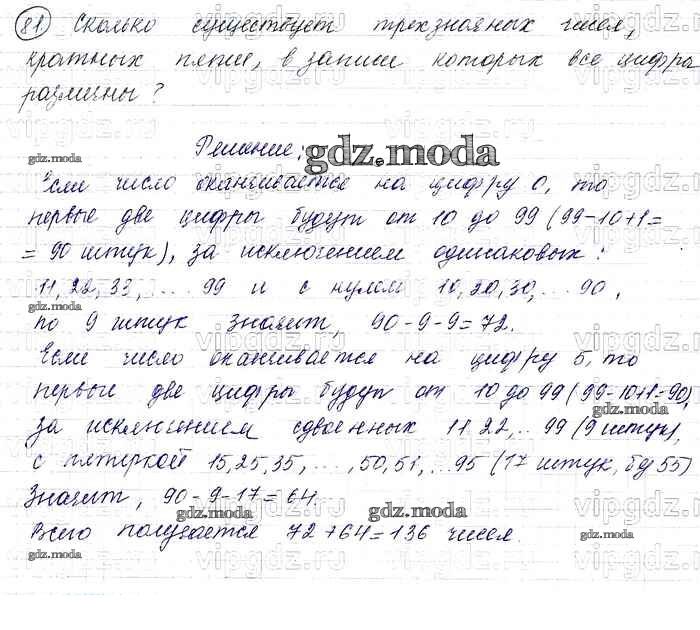 81 Сколько существует трехзначных чисел,
кратных пяти, в записи которых все цифры
различны?
Решение:
gdz.moda
Если число оканчивается на цифру 0, то
первые две цифры будут от 10 до 99 (99-10+1=
= 90 штук), за исключением одинаковых:
11, 22, 33, ... 99 и с нулом 10, 20, 30, ... 90,
по 9 штук значит, 90-9-9=72.
Если число оканчивается на цифру 5, то
первые две цифры будут от 10 до 99 (99-10+1=90),
за исключением сдвоенных 11, 22, .. 99 (9 штук),
с пятеркой 15, 25, 35, ..., 50, 51, .. 95 (17 штук, бу 55)
Значит, 90-9-17=64.
Всего получается 72+64=136 чисел.
gdz.moda
gdz.moda
gdz.moda
gdz.moda
gdz.moda
gdz.moda
gdz.moda
vipgdz.ru